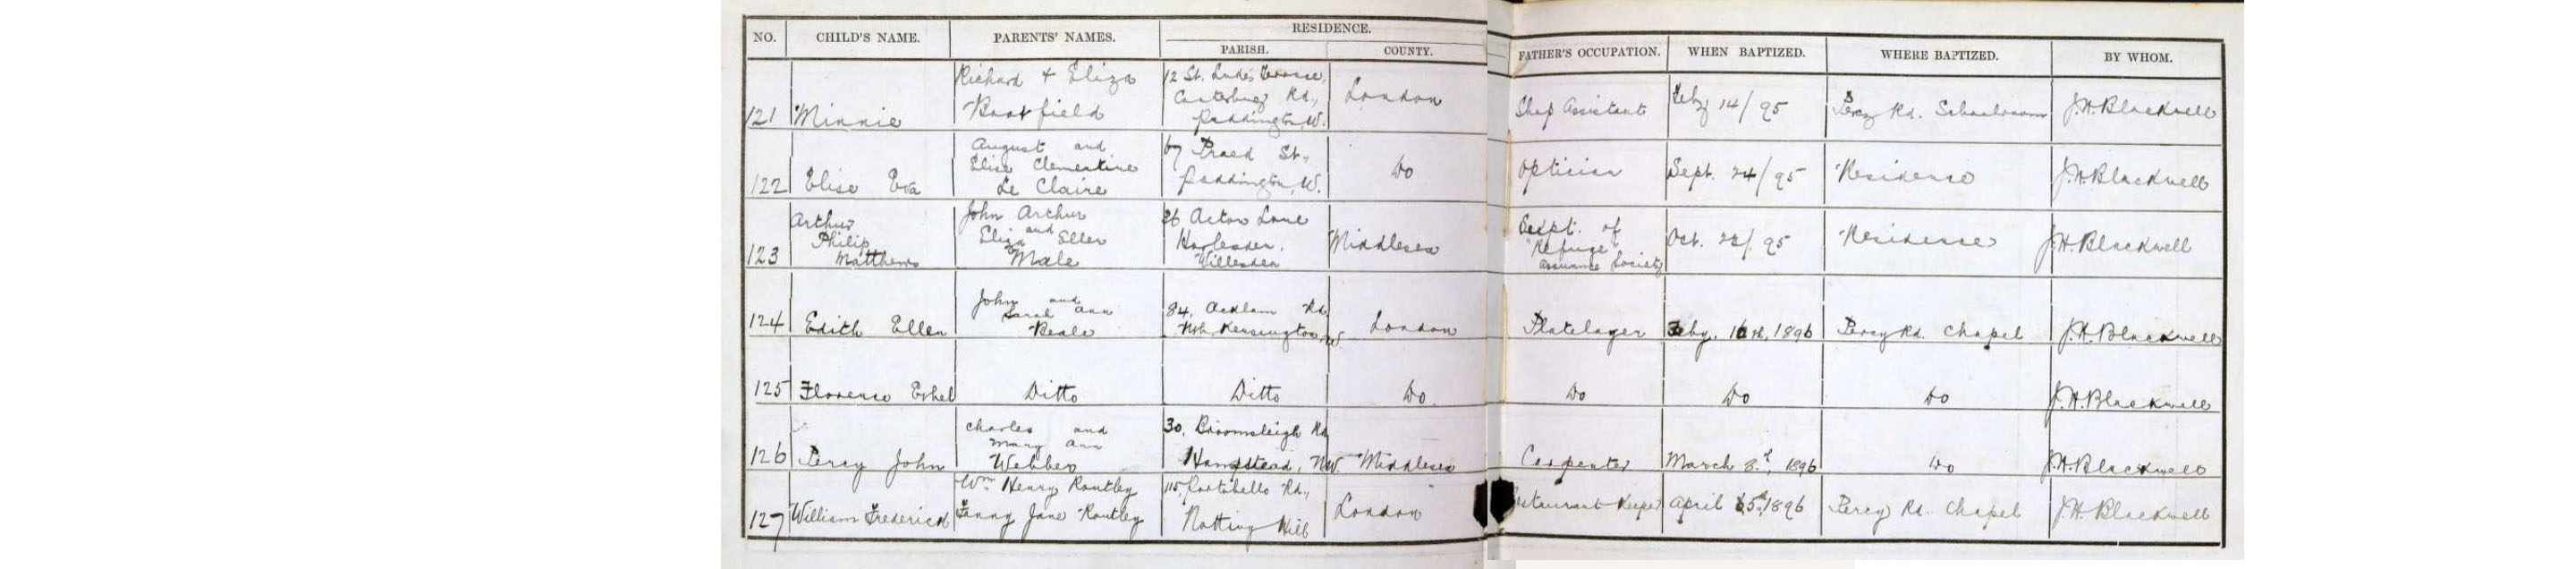 NO. CHILD'S NAME. PARENTS' NAMES. RESIDENCE. PARISH. COUNTY. FATHER'S OCCUPATION. WHEN BAPTIZED. WHERE BAPTIZED. BY WHOM.
Richard & Eliza 12 St. Luke's Terrace,
Canterbury Rd.,
121 Minnie field Paddington, W. London Shop Assistant Feby 14/95 Percy Rd. Schoolroom J.H. Blackwell
August and 67 Praed St.,
Elise Clementine
122 Elise Eva Le Claire Paddington, W. Do Optician Sept. 24/95 Residence J.H. Blackwell
Arthur John Arthur 26 Acton Lane Supt. of
Philip and Eliza Ellen Harlesden. "Refuge"
123 Matthews Male Willesden Middlesex Assurance Society Oct. 22/95 Residence J.H. Blackwell
John and 84, Acklam Rd
Sarah Ann
124 Edith Ellen Beale Nth. Kensington, W. London Platelayer Feby. 16th, 1896 Percy Rd. Chapel J.H. Blackwell
125 Florence Ethel Ditto Ditto Do. Do Do Do J.H. Blackwell
Charles and 30, Broomsleigh Rd
Mary Ann
126 Percy John Webber Hampstead, NW. Middlesex Carpenter March 8th, 1896 Do J.H. Blackwell
Wm Henry Routley 115, Portobello Rd.,
127 William Frederick Fanny Jane Routley Notting Hill London Restaurant Keeper April 1896 Percy Rd. Chapel J.H. Blackwell